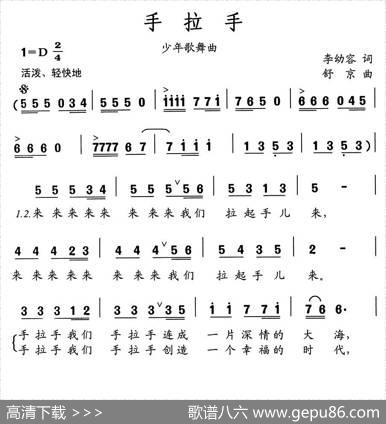 手拉手
1=D 2/4
少年歌舞曲
李幼容 词
活泼、轻快地
舒京 曲
(5 5 5 0 3 4 | 5 5 5 0 | i i i i 7 7 i | 7 6 5 0 | 6 6 6 0 4 5 |
6 6 6 0 | 7777 6 7 | 7 i i i | 1 3 5 3 | 1 3 5 3) |
5 5 5 3 4 | 5 5 5 ∨ 5 6 | 5 3 1 3 | 5 - |
1.2.来 来 来 来 来 来 来 来 我 们 拉 起 手 儿 来,
4 4 4 2 3 | 4 4 4 ∨ 5 6 | 5 4 3 5 | 2 - |
来 来 来 来 来 来 来 来 我 们 拉 起 手 儿 来。
3 3 3 1 2 | 3 3 3 ∨ 3 5 | i i 7 7 i | 7 6 6· |
手 拉 手 我 们 手 拉 手 连 成 一 片 深 情 的 大 海,
手 拉 手 我 们 手 拉 手 创 造 一 个 幸 福 的 时 代,
高清下载 >>>
歌谱八六 www.gepu86.com